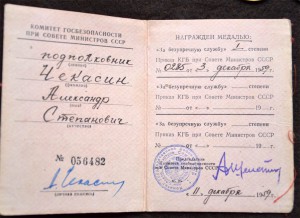 КОМИТЕТ ГОСБЕЗОПАСНОСТИ
ПРИ СОВЕТЕ МИНИСТРОВ СССР
подполковник
Чекасин
Александр
Степанович
№ 056482
НАГРАЖДЕН МЕДАЛЬЮ:
«За безупречную службу» I степени
Приказ КГБ при Совете Министров СССР
№ 0285 от «3» декабря 1959 г.
«За безупречную службу» степени
Приказ КГБ при Совете Министров СССР
№ от « » 19 г.
«За безупречную службу» степени
Приказ КГБ при Совете Министров СССР
№ от « » 19 г.
Председатель
при Совете Министров СССР
11 декабря 1959 г.